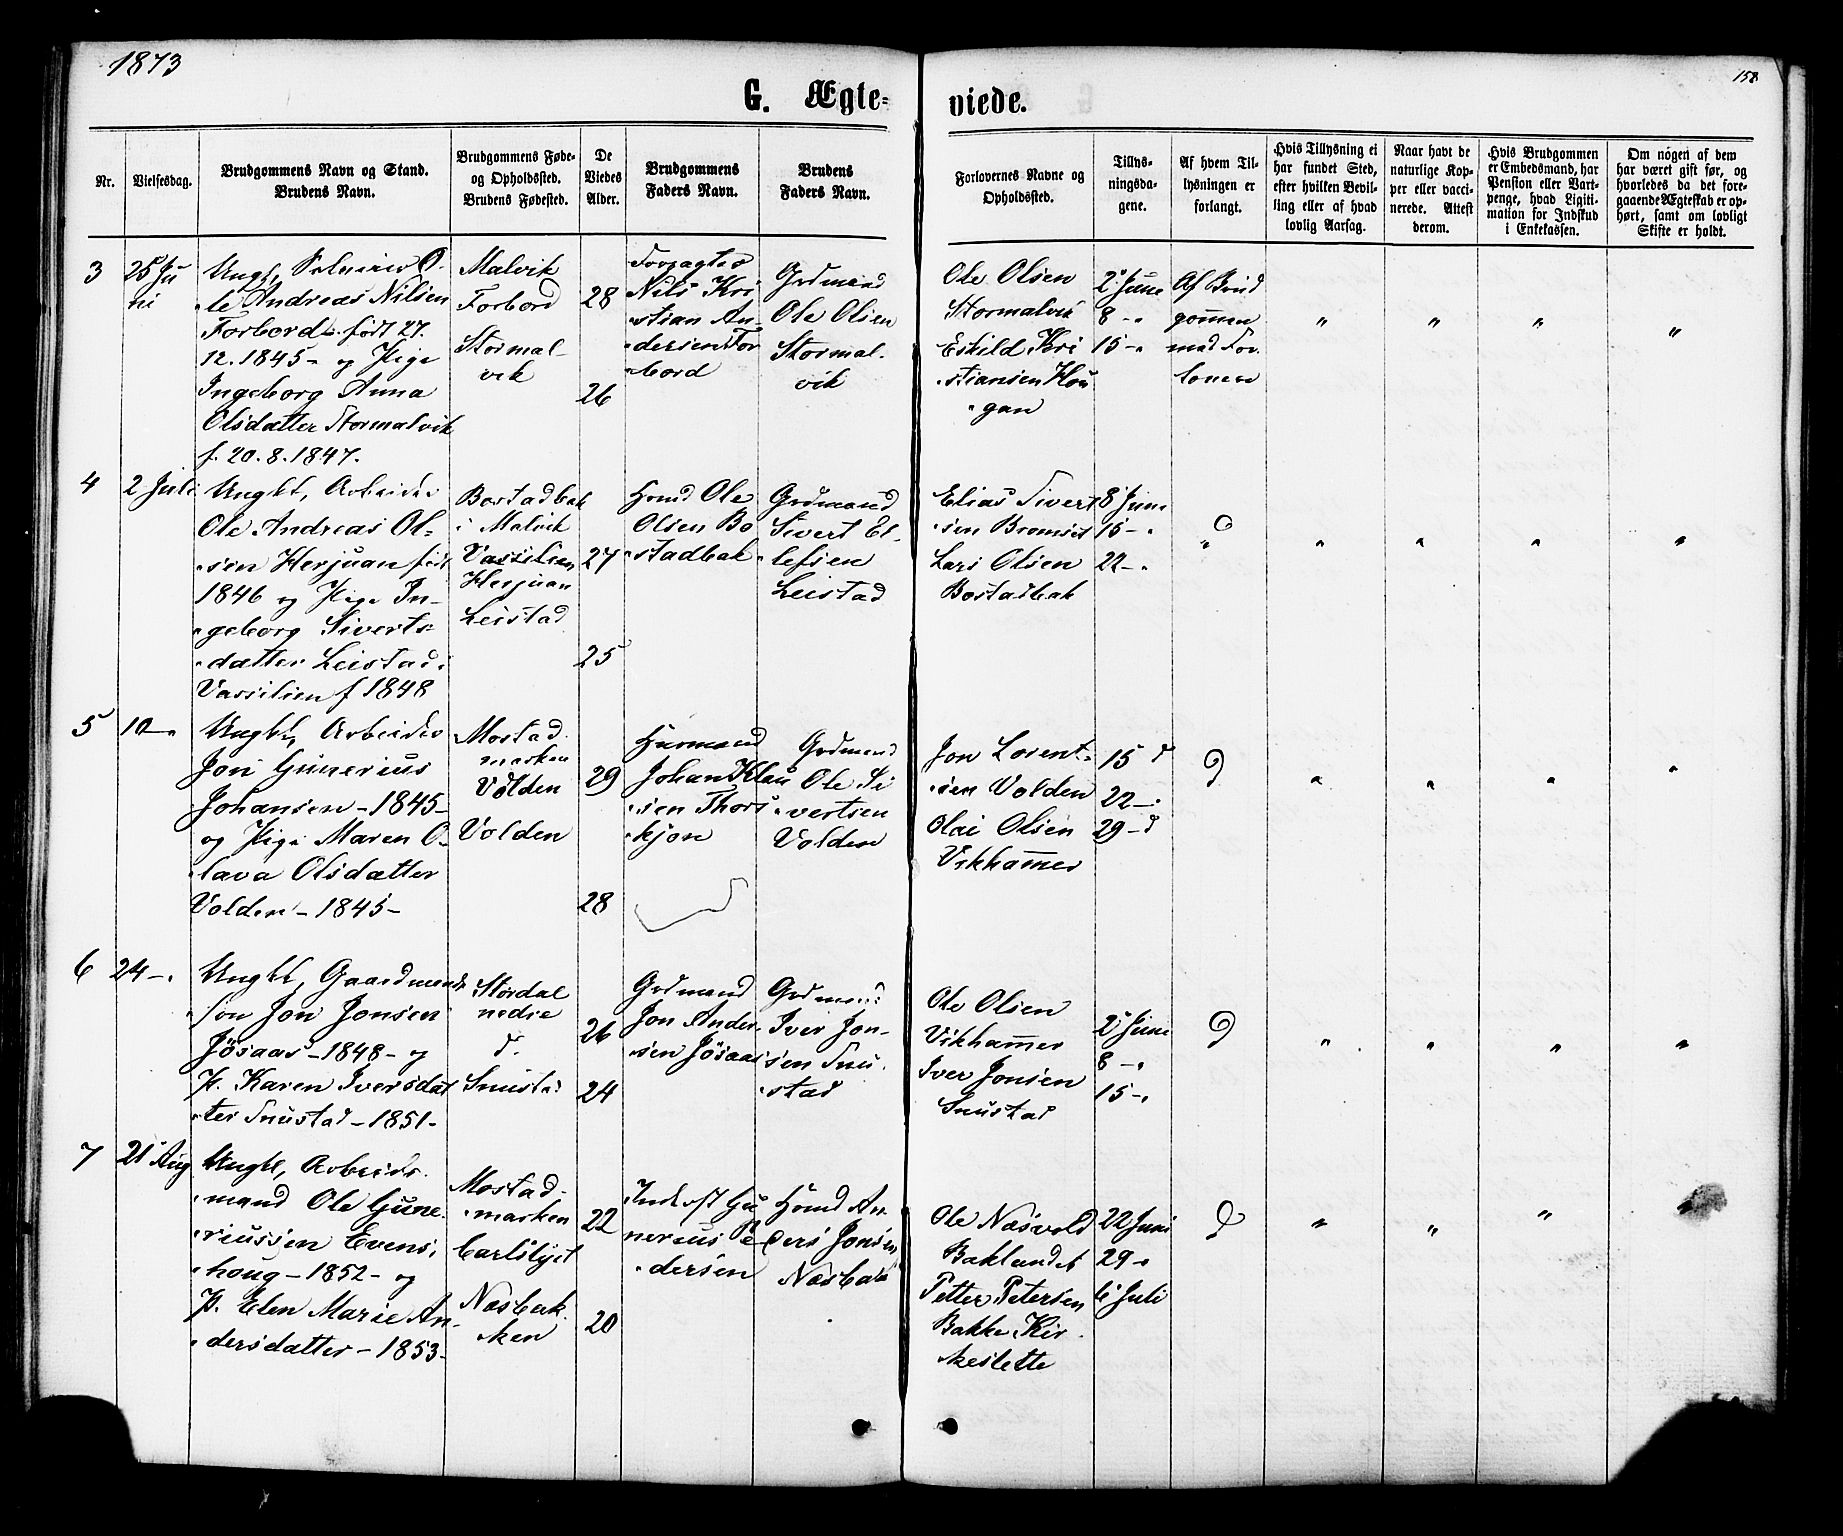 1873
158
G. Ægte-
viede.
Nr.
Vielsesdag.
Brudgommens Navn og Stand.
Brudens Navn.
Brudgommens Føde-
og Opholdssted.
Brudens Fødested.
De
Viedes
Alder.
Brudgommens
Faders Navn.
Brudens
Faders Navn.
Forlovernes Navne og
Opholdssted.
Tillys-
ningsda-
gene.
Af hvem Til-
lysningen er
forlangt.
Hvis Tillysning ei
har fundet Sted,
efter hvilken Bevil-
ling eller af hvad
lovlig Aarsag.
Naar havt de
naturlige Kop-
per eller vacci-
nerede. Attest
derom.
Hvis Brudgommen
er Embedsmand, har
Pension eller Vart-
penge, hvad Ligiti-
mation for Indskud
i Enkekassen.
Om nogen af dem
har været gift før, og
hvorledes da det fore-
gaaende Ægteskab er op-
hørt, samt om lovligt
Skifte er holdt.
3
25 Ju
ni
Ungk, O-
le Andreas Nilsen
Forbord født 27.
12.1845- og Pige
Ingeborg Anna
Olsdatter Stormalvik
f. 20.8.1847.
Malvik
Forbord
Stormal-
vik
28
26
Forpagter
Nils Kri
stian An-
dersen For
bord
Grdmand
Ole Olsen
Stormal-
vik
Ole Olsen
Stormalvik
Eskild Kri
stiansen Hou
gan
2 June
8 - "
15 - "
Af Brud
gommen
med For
lovere
" " " "
4
2 Juli
Ungkl, Arbeider
Ole Andreas Ol-
sen Herjuan født
1846 og Pige In-
geborg Siverts-
datter Leistad i
Vassilien f 1848
Bostadbak
i Malvik
Vassilien
Herjuan
Leistad
27
25
Hsmd Ole
Olsen Bo
stadbak
Grdmand
Sivert El-
lefsen
Leistad
Elias Sivert
sen Bromset
Lars Olsen
Bostadbak
8 Juni
15 - "
22 - "
" " " " "
5
10 - "
Ungkl, Arbeider
Jon Gunerius
Johansen - 1845-
og Pige Maren O-
lava Olsdatter
Volden - 1845-
Mostad
marken
Volden
Volden
29
28
Husmand
Johan Klau
sen Thors
kjøn
Grdmand
Ole Si
vertsen
Volden
Jon Lorent-
sen Volden
Olai Olsen
Vikhammer
15 d
22 - "
29 - d
" " " "
6
24 - "
Ungkl, Gaardmands
søn Jon Jonsen
Jøsaas - 1848 - og
P. Karen Iversdat
ter Snustad - 1851-
Størdal
nedre
d.
Snustad
26
24
Grdmand
Jon Ander-
sen Jøsaas
Grdmand
Iver Jon-
sen Snu-
stad
Ole Olsen
Vikhammer
Iver Jonsen
Snustad
2 Juni
8 - "
15 - "
" " " "
7
21 Aug
Ungkl, Arbeids-
mand Ole Gune-
riussen Evens-
houg - 1852 - og
P. Elen Marie An-
dersdatter - 1853-
Mostad-
marken
Carlslyst
Næsbak-
ken
22
20
Inderst Gu
nerius Pe
dersen
Hsmd An-
ders Jonsen
Næsbak
Ole Næsvold
Baklandet
Petter Petersen
Bakke Kir
keslette
22 Juni
29 - "
6 Juli
" " "